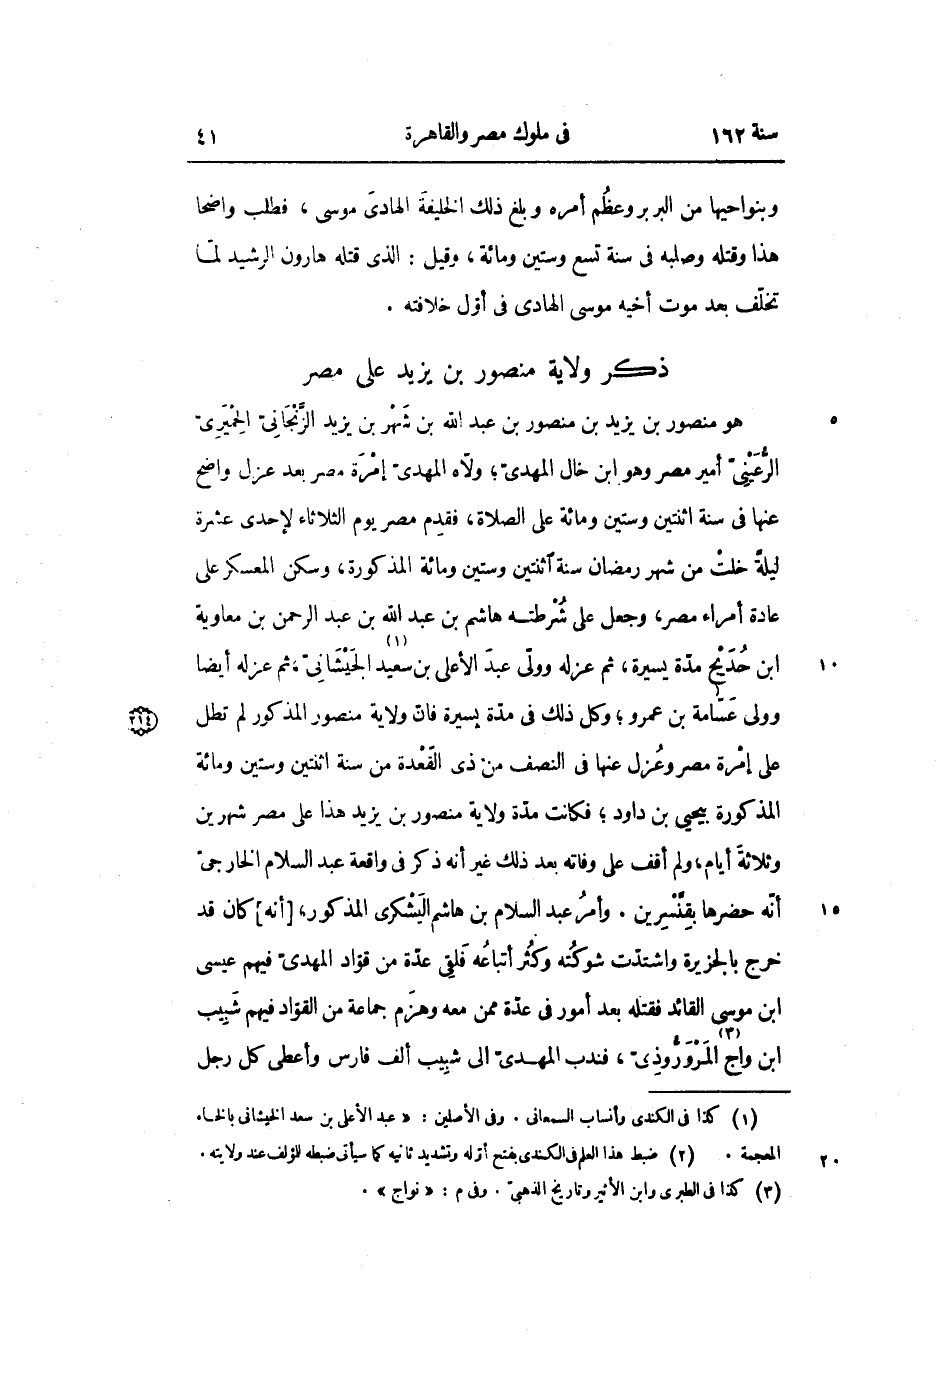 سنة ١٦٢ فى ملوك مصر والقاهرة ٤١
وبنواحيها من البربر وعظُم أمره وبلغ ذلك الخليفةَ الهادىَ موسى ، فطلب واضحا
هذا وقتله وصلبه فى سنة تسع وستين ومائة ، وقيل : الذى قتله هارون الرشيد لمّا
تخلّف بعد موت أخيه موسى الهادى فى أوّل خلافته .
ذكر ولاية منصور بن يزيد على مصر
هو منصور بن يزيد بن منصور بن عبد الله بن شَهْر بن يزيد الزَّنْجَانِىّ الحِمْيَرِىّ ٥
الرُّعَيْنِىّ أمير مصر وهو ابن خال المهدىّ ؛ ولّاه المهدىّ إمْرَة مصر بعد عزل واضح
عنها فى سنة اثنتين وستين ومائة على الصلاة ، فقدِم مصر يوم الثلاثاء لإحدى عشرة
ليلةً خلتْ من شهر رمضان سنة آثنتين وستين ومائة المذكورة ، وسكن المعسكر على
عادة أمراء مصر ، وجعل على شُرْطته هاشم بن عبد الله بن عبد الرحمن بن معاوية
ابن حُدَيْج مدّة يسيرة ، ثم عزله وولّى عبدَ الأعلى بن سعيد (١) الجَيْشَانِىّ ، ثم عزله أيضا ١٠
وولى عَسّامة (٢) بن عمرو ؛ وكل ذلك فى مدّة يسيرة فانّ ولاية منصور المذكور لم تطل
على إمْرة مصر وعُزل عنها فى النصف من ذى القَعْدة من سنة اثنتين وستين ومائة
المذكورة بيحيى بن داود ؛ فكانت مدّة ولاية منصور بن يزيد هذا على مصر شهرين
وثلاثةَ أيام ، ولم أقف على وفاته بعد ذلك غير أنه ذكر فى واقعة عبد السلام الخارجىّ
أنّه حضرها بقِنَّسْرِين . وأمرُ عبد السلام بن هاشم اليَشْكرى المذكور ، [أنه] كان قد ١٥
خرج بالجزيرة واشتدّت شوكتُه وكثُر أتباعُه فَلقِى عدّة من قوّاد المهدىّ فيهم عيسى
ابن موسى القائد فقتله بعد أمور فى عدّة ممن معه وهزَم جماعة من القوّاد فيهم شَبِيب
ابن واج (٣) المَرْوَرُّوذِىّ ، فندب المهدىّ الى شبِيب ألف فارس وأعطى كل رجل
(١) كذا فى الكندى وأنساب السمعانى . وفى الأصلين : « عبد الأعلى بن سعد الخيشانى بالخاء
المعجمة . (٢) ضبط هذا العلم فى الكندى بفتح أوّله وتشديد ثانيه كما سيأتى ضبطه للؤلف عند ولايته . ٢٠
(٣) كذا فى الطبرى وابن الأثير وتاريخ الذهبىّ . وفى م : « نواج » .